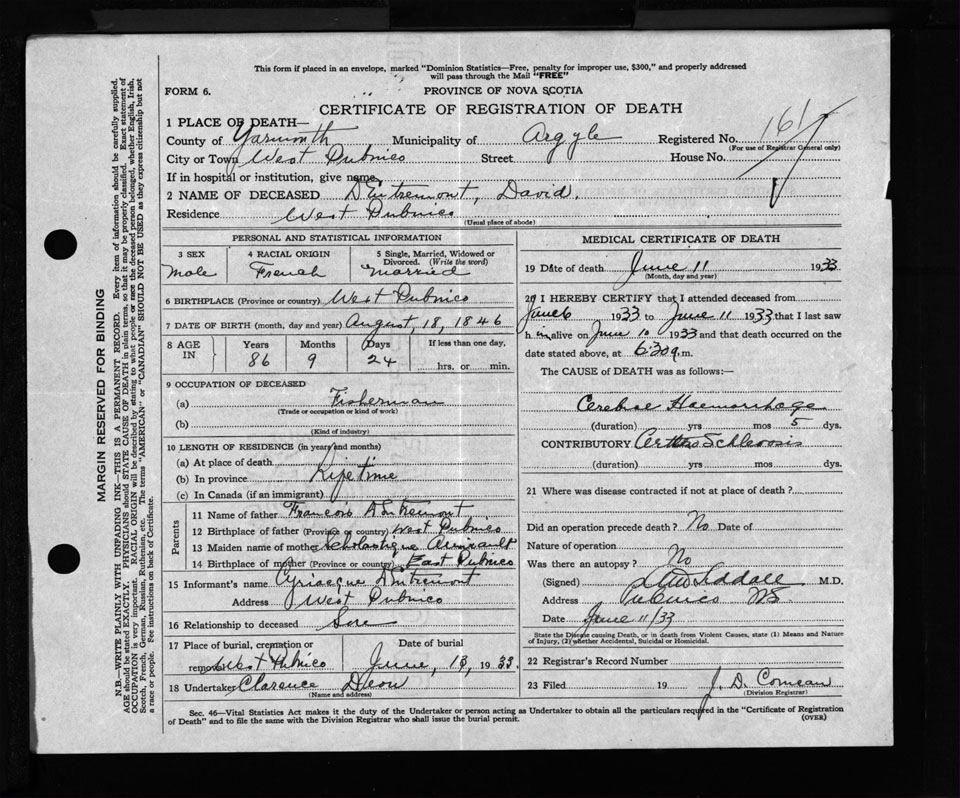 This form if placed in an envelope, marked "Dominion Statistics—Free, penalty for improper use, $300," and properly addressed
will pass through the Mail "FREE"
FORM 6.
PROVINCE OF NOVA SCOTIA
CERTIFICATE OF REGISTRATION OF DEATH
1 PLACE OF DEATH—
County of Yarmouth Municipality of Argyle Registered No. 161
(For use of Registrar General only)
City or Town West Pubnico Street House No.
If in hospital or institution, give name
2 NAME OF DECEASED D'Entremont, David.
Residence West Pubnico
(Usual place of abode)
PERSONAL AND STATISTICAL INFORMATION
3 SEX 4 RACIAL ORIGIN 5 Single, Married, Widowed or Divorced. (Write the word)
Male French Married
6 BIRTHPLACE (Province or country) West Pubnico
7 DATE OF BIRTH (month, day and year) August, 18, 1846
8 AGE IN Years Months Days If less than one day,
86 9 24 hrs. or min.
9 OCCUPATION OF DECEASED
(a) Fisherman
(Trade or occupation or kind of work)
(b)
(Kind of industry)
10 LENGTH OF RESIDENCE (in years and months)
(a) At place of death
(b) In province Life time
(c) In Canada (if an immigrant)
Parents
11 Name of father Francois D'Entremont
12 Birthplace of father (Province or country) West Pubnico
13 Maiden name of mother Scholastique Amirault
14 Birthplace of mother (Province or country) East Pubnico
15 Informant's name Cyriaque D'Entremont
Address West Pubnico
16 Relationship to deceased Son
17 Place of burial, cremation or removal Date of burial
West Pubnico June, 13, 1933.
18 Undertaker Clarence Deon
(Name and address)
MEDICAL CERTIFICATE OF DEATH
19 Date of death June 11 1933
(Month, day and year)
20 I HEREBY CERTIFY that I attended deceased from
June 6 1933 to June 11 1933 that I last saw
h im alive on June 10 1933 and that death occurred on
date stated above, at 6:30 a.m.
The CAUSE of DEATH was as follows:—
Cerebral Haemorrhage
(duration) yrs mos 5 dys.
CONTRIBUTORY
(duration) yrs mos dys.
21 Where was disease contracted if not at place of death ?
Did an operation precede death ? No Date of
Nature of operation
Was there an autopsy ? No
(Signed) Siddall M.D.
Address Pubnico NS
Date June 11/33
State the Disease causing Death, or in death from Violent Causes, state (1) Means and Nature
of Injury, (2) whether Accidental, Suicidal or Homicidal.
22 Registrar's Record Number
23 Filed 19 J. D. Comeau
(Division Registrar)
Sec. 46—Vital Statistics Act makes it the duty of the Undertaker or person acting as Undertaker to obtain all the particulars required in the "Certificate of Registration
of Death" and to file the same with the Division Registrar who shall issue the burial permit.
(OVER)
MARGIN RESERVED FOR BINDING
N.B.—WRITE PLAINLY WITH UNFADING INK—THIS IS A PERMANENT RECORD. Every item of information should be carefully supplied.
AGE should be stated EXACTLY. PHYSICIANS should STATE CAUSE OF DEATH in plain terms, so that it may be properly classified. Exact statement of
OCCUPATION is very important. RACIAL ORIGIN will be described by stating to what people or race the deceased person belonged, whether English, Irish,
Scotch, French, German, Russian, Ruthenian, etc. The terms "AMERICAN" or "CANADIAN" SHOULD NOT BE USED as they express citizenship but not
a race or people. See instructions on back of Certificate.